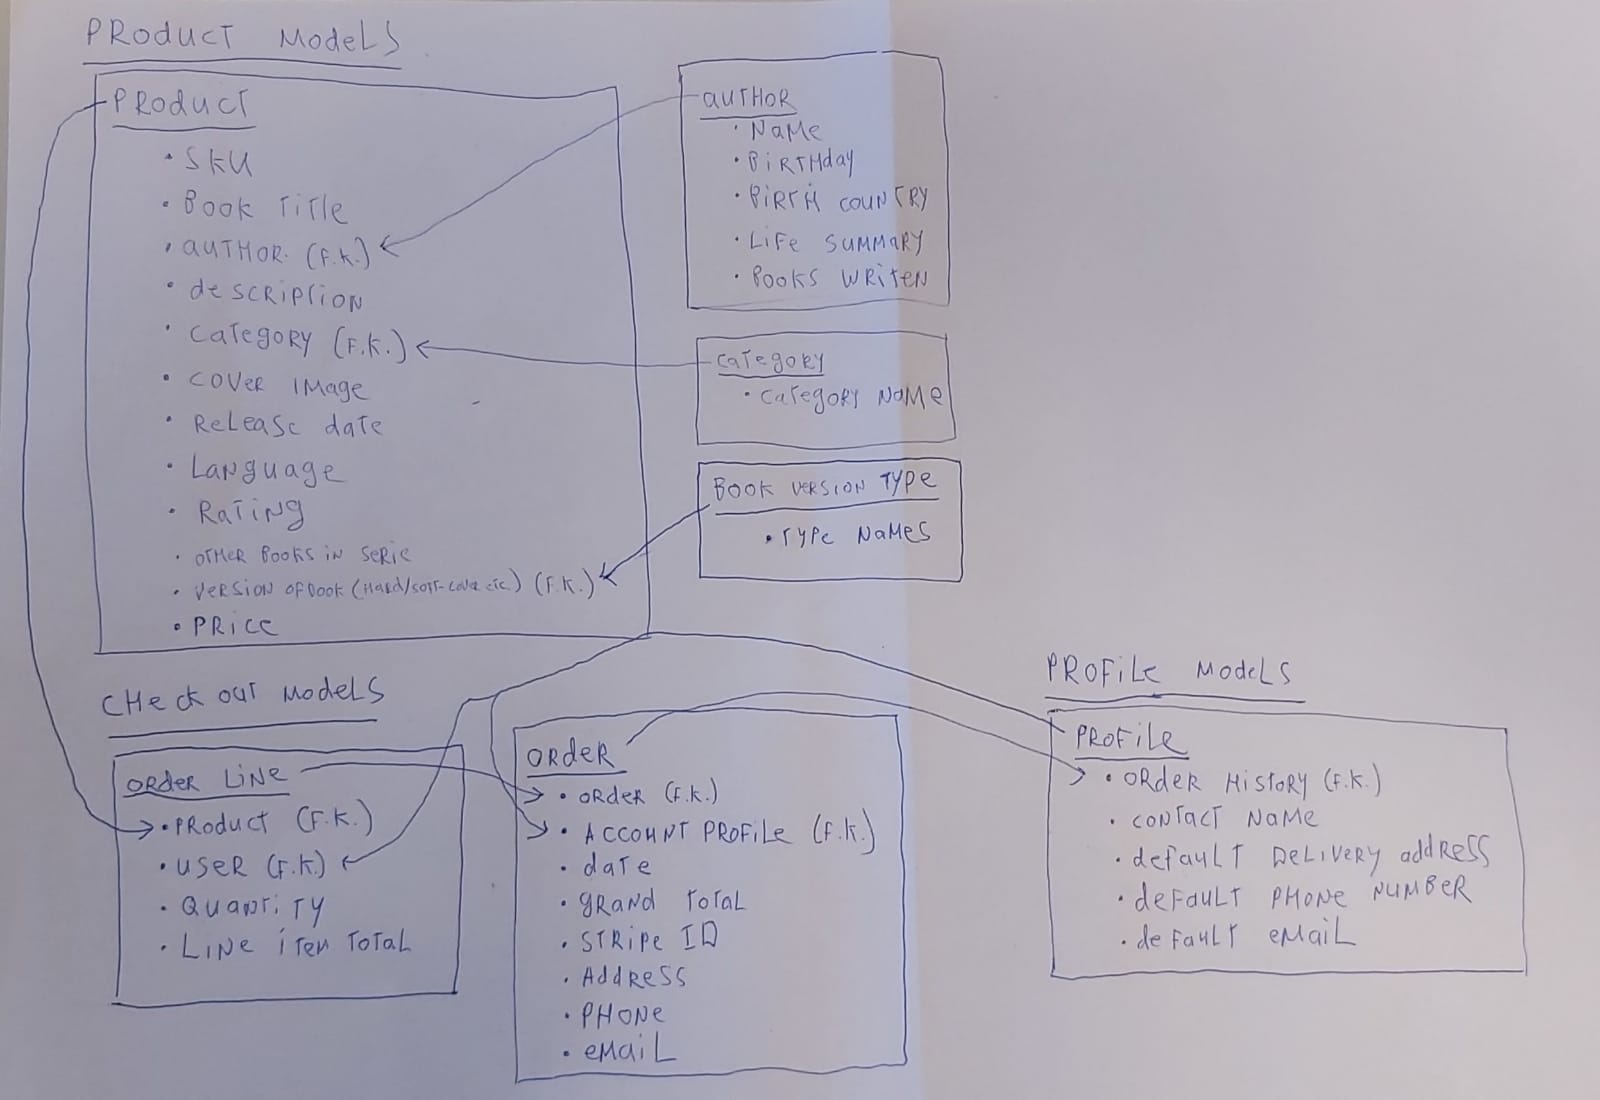 PRODUCT MODELS
PRODUCT
• SKU
• BOOK TITLE
• AUTHOR. (F.K.)
• DESCRIPTION
• CATEGORY (F.K.)
• COVER IMAGE
• RELEASE DATE
• LANGUAGE
• RATING
• OTHER BOOKS IN SERIE
• VERSION OF BOOK (HARD/SOFT-COVER ETC.) (F.K.)
• PRICE
AUTHOR
• NAME
• BIRTHDAY
• BIRTH COUNTRY
• LIFE SUMMARY
• BOOKS WRITEN
CATEGORY
• CATEGORY NAME
BOOK VERSION TYPE
• TYPE NAMES
CHECK OUT MODELS
ORDER LINE
• PRODUCT (F.K.)
• USER (F.K.)
• QUANTITY
• LINE ITEM TOTAL
ORDER
• ORDER (F.K.)
• ACCOUNT PROFILE (F.K.)
• DATE
• GRAND TOTAL
• STRIPE ID
• ADDRESS
• PHONE
• EMAIL
PROFILE MODELS
PROFILE
• ORDER HISTORY (F.K.)
• CONTACT NAME
• DEFAULT DELIVERY ADDRESS
• DEFAULT PHONE NUMBER
• DEFAULT EMAIL